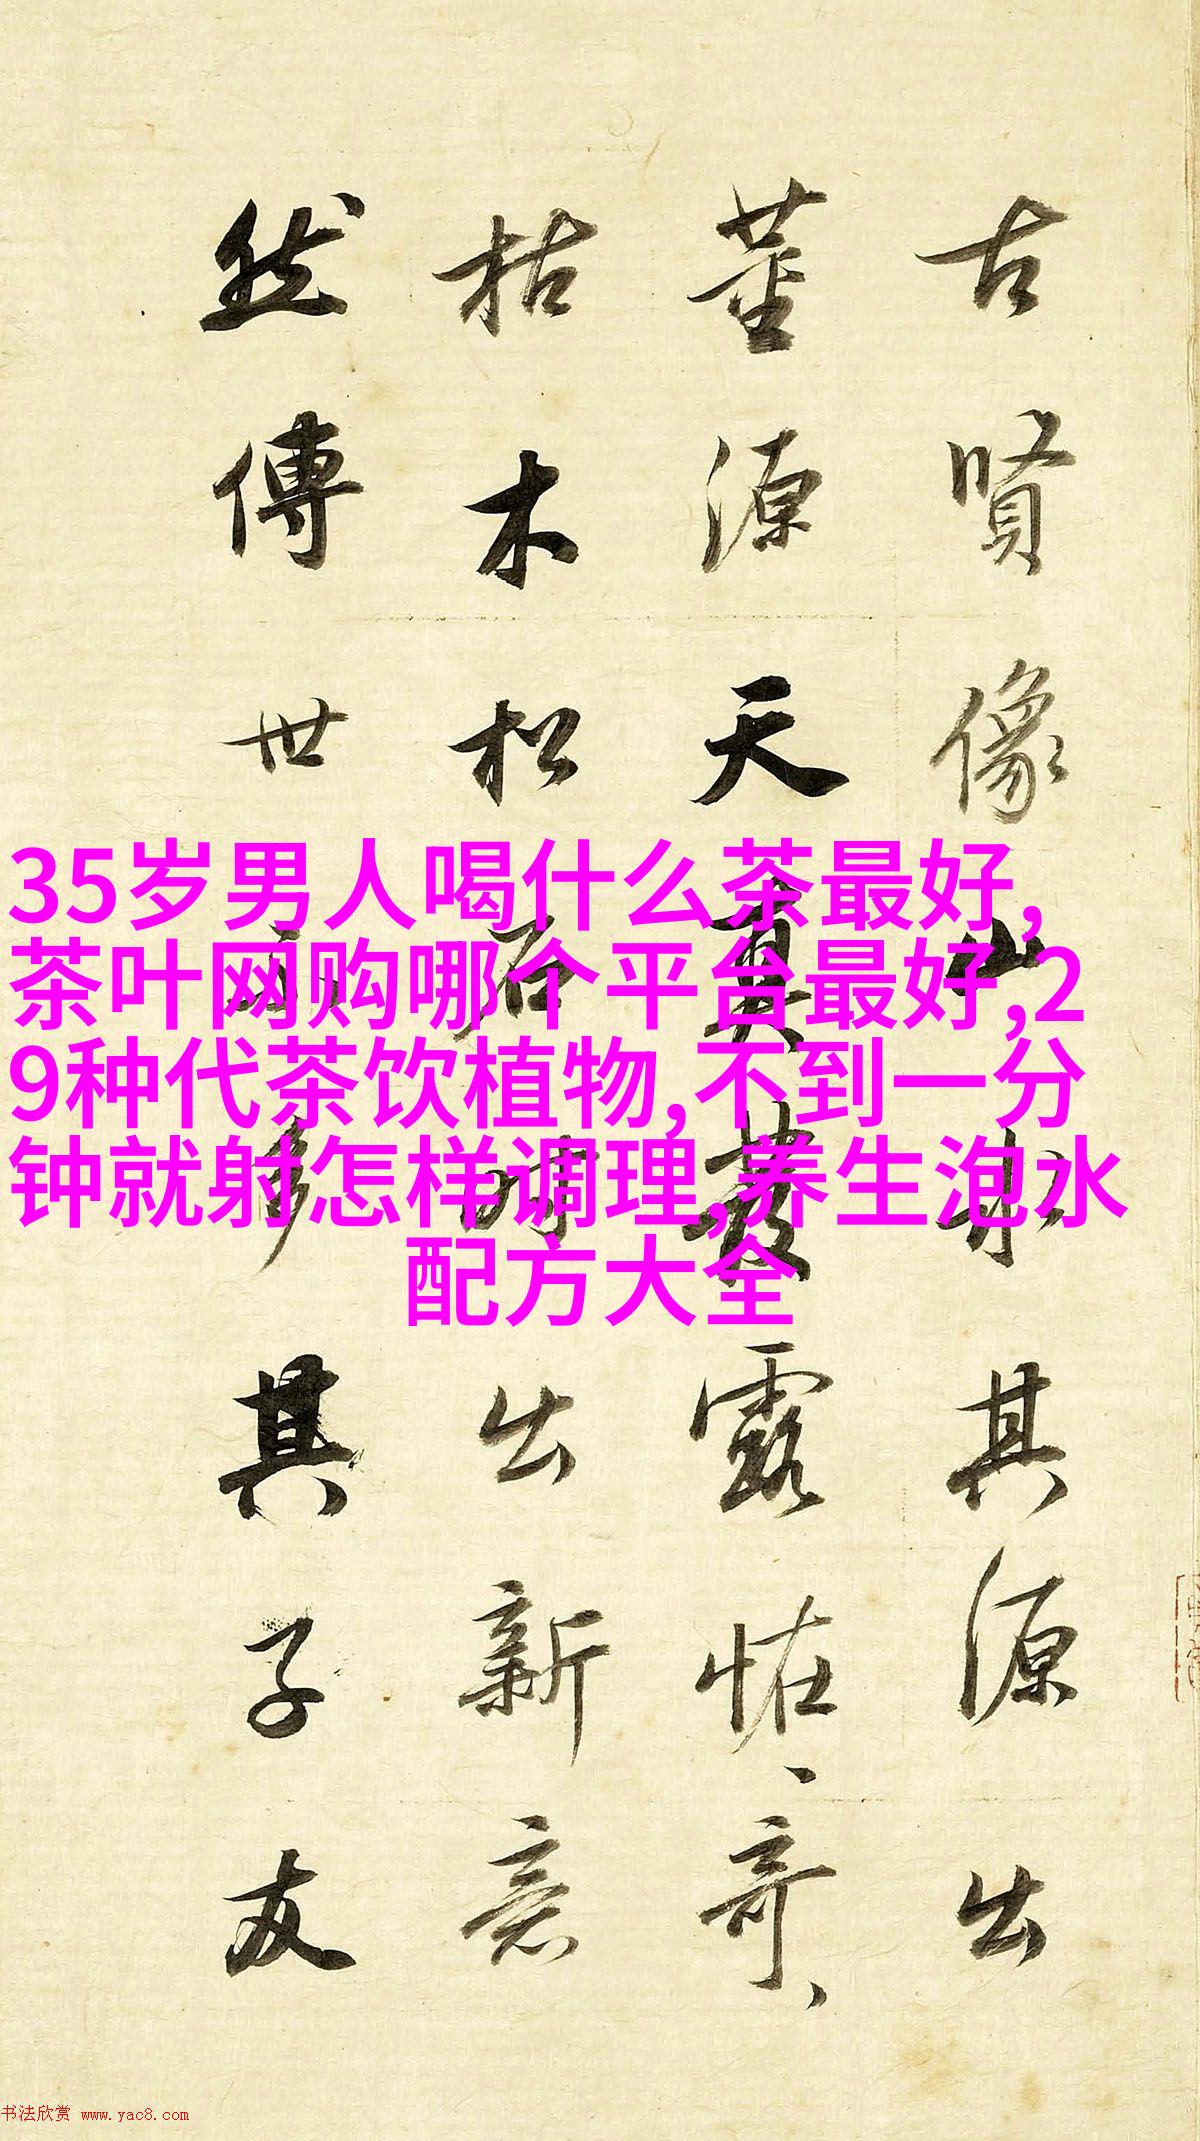 古賢像山水其源出
董源天真發露恠奇
枯木松石時出新意
然傳世不多其子友
35岁男人喝什么茶最好,
茶叶网购哪个平台最好,2
9种代茶饮植物,不到一分
钟就射怎样调理,养生泡水
配方大全
书法欣赏 www.yac8.com